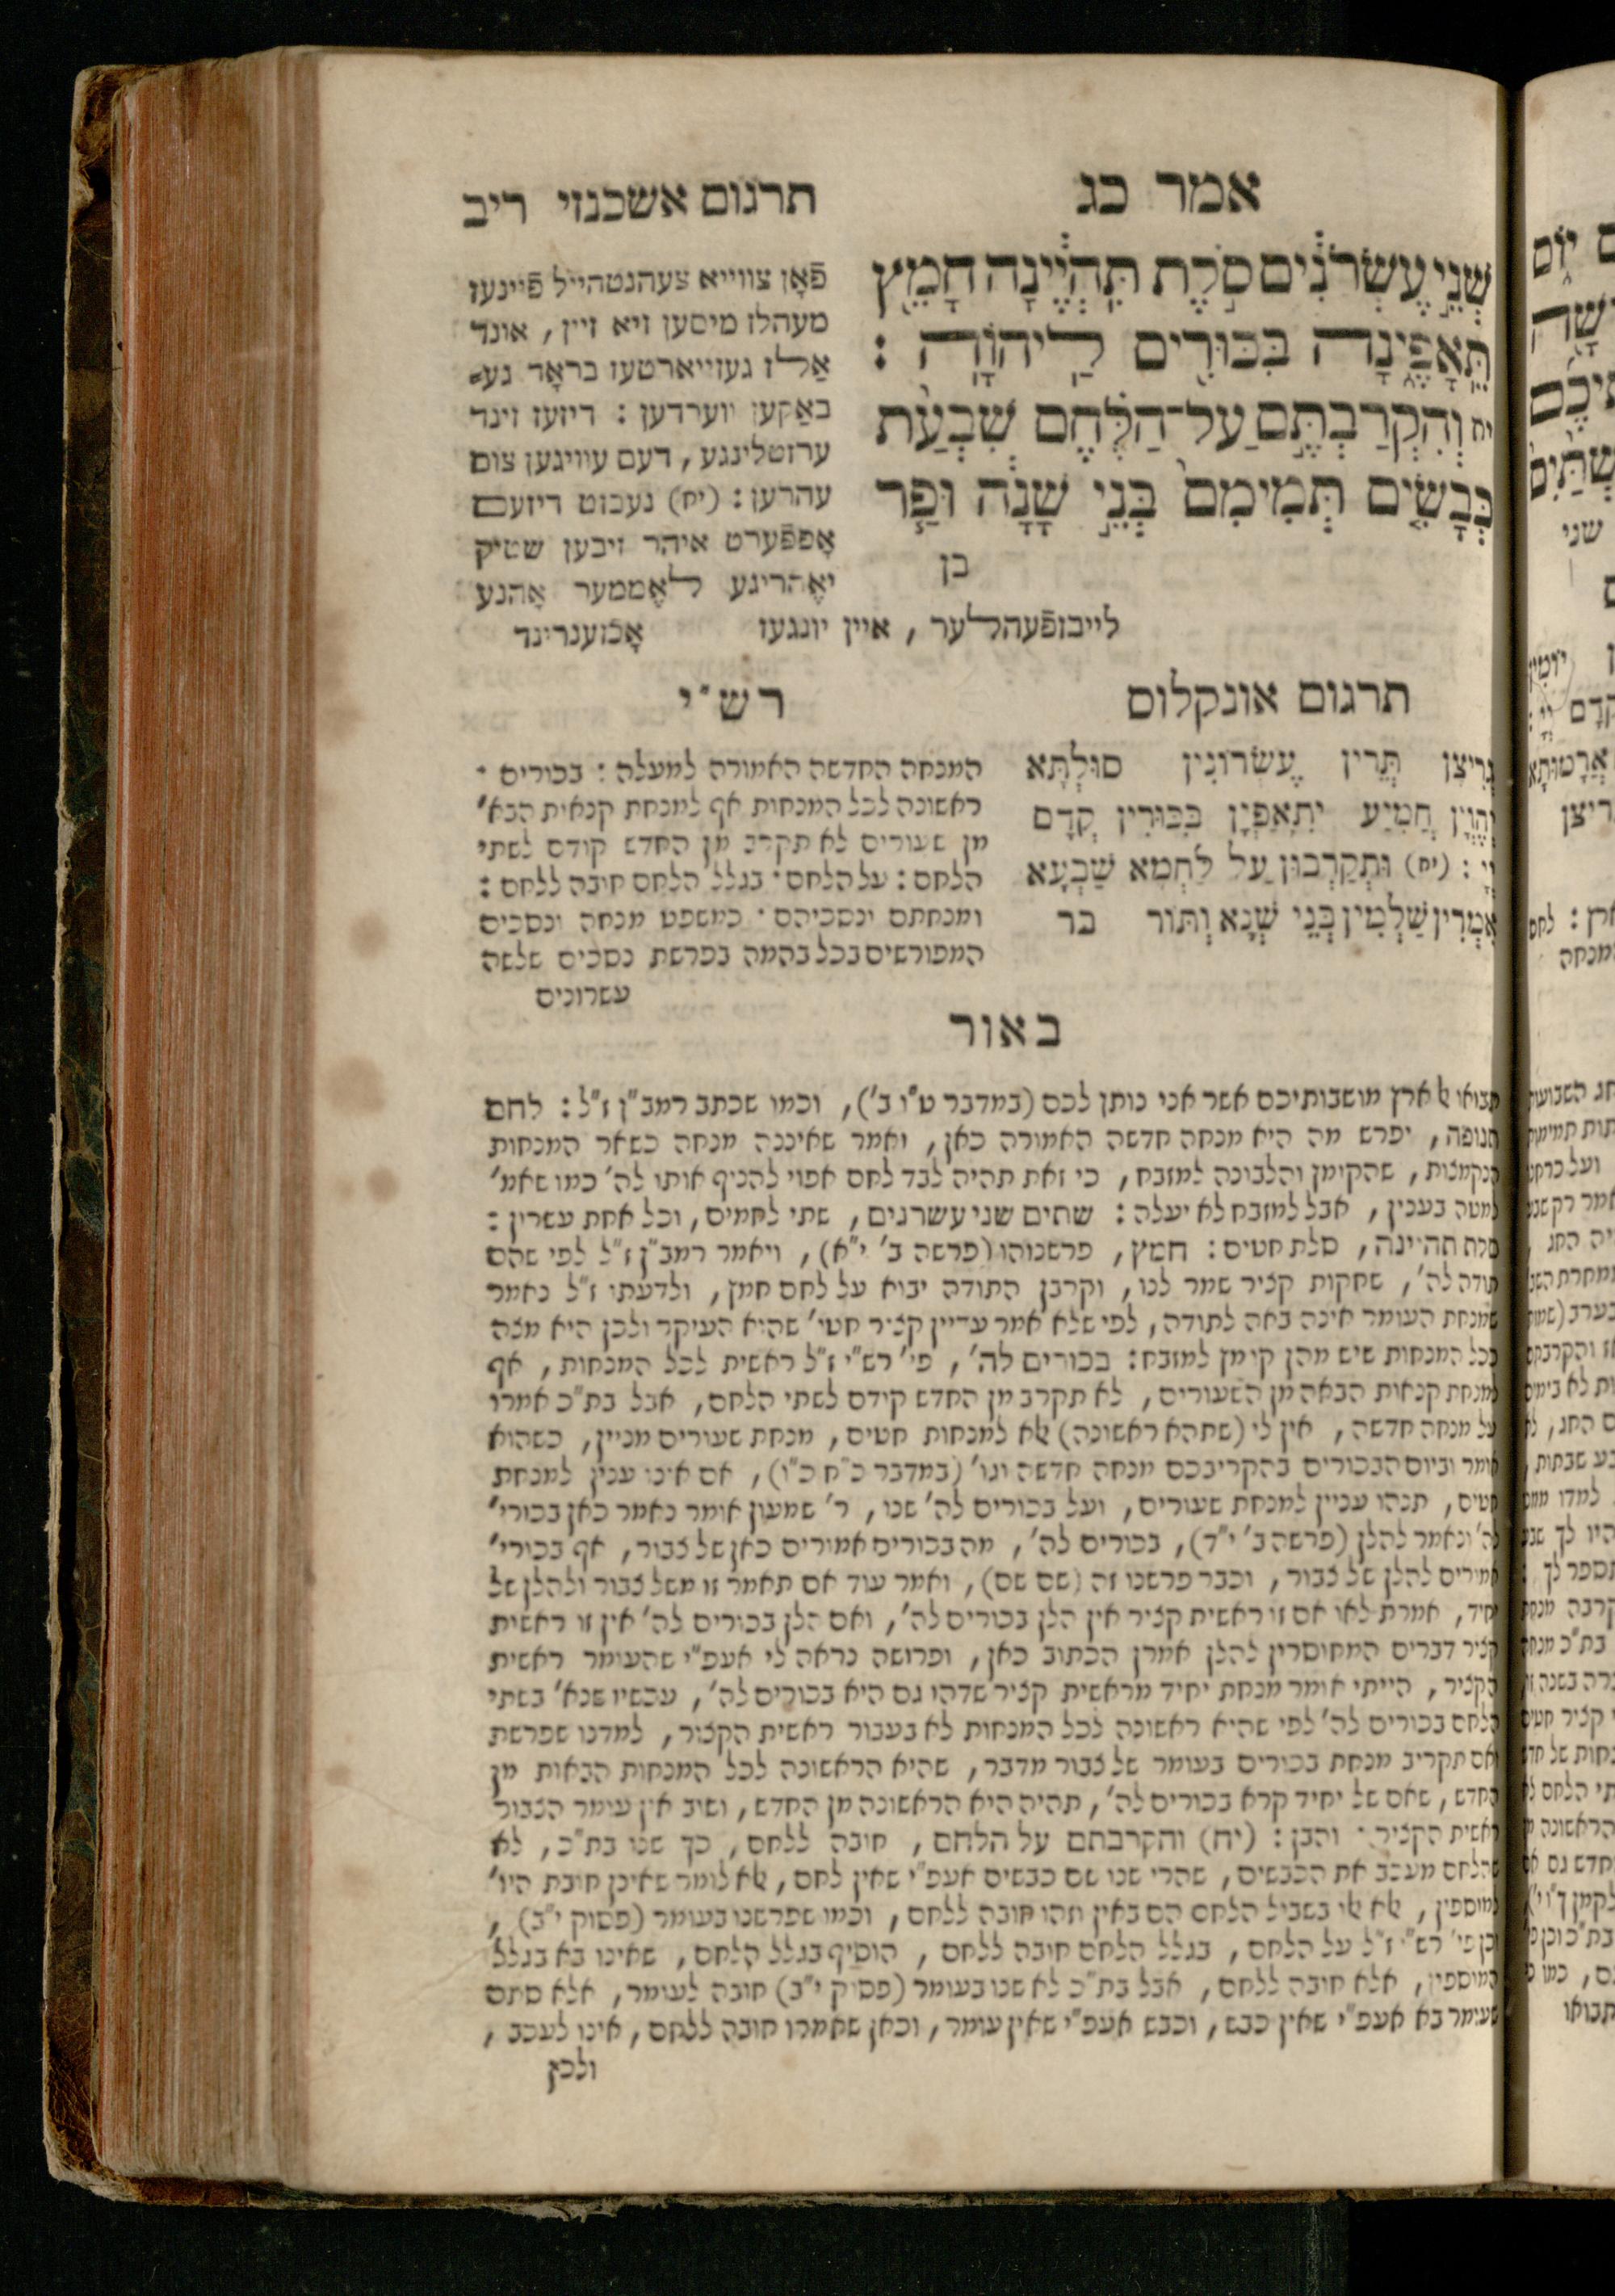 אמר כג
תרגום אשכנזי ריב
שְׁנֵ֣י עֶשְׂרֹנִ֔ים סֹ֣לֶת תִּֽהְיֶ֔ינָה חָמֵ֖ץ
תֵּֽאָפֶ֑ינָה בִּכּוּרִ֖ים לַֽיהוָֽה :
יח וְהִקְרַבְתֶּ֣ם עַל־הַלֶּ֗חֶם שִׁבְעַ֨ת
כְּבָשִׂ֤ים תְּמִימִם֙ בְּנֵ֣י שָׁנָ֔ה וּפַ֧ר
בן
פֿאָן צווייא צעהנטהייל פֿיינעז
מעהלז מיסען זיא זיין, אונד
אַלז געזייארטעז בראָד גע־
באַקען ווערדען : דיזעז זינד
ערזטלינגע, דעם עוויגען צום
עהרען : (יח) נעבזט דיזעם
אָפפֿערט איהר זיבען שטיק
יאֶהריגע לאֶממער אָהנע
לייבזפֿעהלער, איין יונגעז
אָכזענרינד
תרגום אונקלוס
גְרִיצָן תְּרֵין עֶשְׂרוֹנִין סוּלְתָּא
יְהֶוְיָן חֲמִיעַ יִתְאַפְיָן בִּכּוּרִין קֳדָם
יְיָ : (יח) וּתְקָרְבוּן עַל לַחְמָא שַׁבְעָא
אִמְּרִין שַׁלְמִין בְּנֵי שְׁנָא וְתוֹר בר
רש״י
המנחה החדשה האמורה למעלה : בכורים ·
ראשונה לכל המנחות אף למנחת קנאות הבא׳
מן שעורים לא תקרב מן החדש קודם לשתי
הלחם : על הלחם · בגלל הלחם חובה ללחם :
ומנחתם ונסכיהם · כמשפט מנחה ונסכים
המפורשים בכל בהמה בפרשת נסכים שלשה
עשרונים
באור
תבואו אל ארץ מושבותיכם אשר אני נותן לכם (במדבר ט״ו ב׳), וכמו שכתב רמב״ן ז״ל : לחם
תנופה, יפרש מה היא מנחה חדשה האמורה כאן, ואמר שאיננה מנחה כשאר המנחות
הנקמצות, שהקימן והלבונה למזבח, כי זאת תהיה לבד לחם אפוי להניף אותו לה׳ כמו שאמ׳
למטה בענין, אבל למזבח לא יעלה : שתים שני עשרנים, שתי לחמים, וכל אחת עשרין :
סלת תהיינה, סלת חטים : חמץ, פרשנוהו (פרשה ב׳ י״א), ויאמר רמב״ן ז״ל לפי שהם
תודה לה׳, שחקות קציר שמר לנו, וקרבן התודה יבוא על לחם חמץ, ולדעתי ז״ל נאמר
שמנחת העומר אינה באה לתודה, לפי שלא אמר עדיין קציר חטי׳ שהיא העיקר ולכן היא מצה
ככל המנחות שיש מהן קומץ למזבח : בכורים לה׳, פי׳ רש״י ז״ל ראשית לכל המנחות, אף
למנחת קנאות הבאה מן השעורים, לא תקרב מן החדש קידם לשתי הלחם, אבל בת״כ אמרו
על מנחה חדשה, אין לי (שתהא ראשונה) אלא למנחות חטים, מנחת שעורים מניין, כשהוא
אומר וביום הבכורים בהקריבכם מנחה חדשה וגו׳ (במדבר כ״ח כ״ו), אם אינו ענין למנחת
חטים, תנהו עניין למנחת שעורים, ועל בכורים לה׳ שנו, ר׳ שמעון אומר נאמר כאן בכורי׳
לה׳ ונאמר להלן (פרשה ב׳ י״ד), בכורים לה׳, מה בכורים אמורים כאן של צבור, אף בכורי׳
אמורים להלן של צבור, וכבר פרשנו זה (שם שם), ואמר עוד אם תאמר זו משל צבור ולהלן של
יחיד, אמרת לאו אם זו ראשית קציר אין הלן בכורים לה׳, ואם הלן בכורים לה׳ אין זו ראשית
קציר דברים המחוסרין להלן אמרן הכתוב כאן, ופרושה נראה לי אעפ״י שהעומר ראשית
הקציר, הייתי אומר מנחת יחיד מראשית קציר שדהו גם היא בכורים לה׳, עכשיו שנא׳ בשתי
הלחם בכורים לה׳ לפי שהיא ראשונה לכל המנחות לא בעבור ראשית הקציר, למדנו שפרשת
ואם תקריב מנחת בכורים בעומר של צבור מדבר, שהיא הראשונה לכל המנחות הבאות מן
החדש, שאם של יחיד קרא בכורים לה׳, תהיה היא הראשונה מן החדש, ושוב אין עומר הצבור
ראשית הקציר · והבן : (יח) והקרבתם על הלחם, חובה ללחם, כך שנו בת״כ, לא
שהלחם מעכב את הכבשים, שהרי שנו שם כבשים אעפ״י שאין לחם, אלא לומר שאינן חובת היו׳
למוספין, אלא אלו בשביל הלחם הם באין וזהו חובה ללחם, וכמו שפרשנו בעומר (פסוק י״ב),
וכן פי׳ רש״י ז״ל על הלחם, בגלל הלחם חובה ללחם, הוסיף בגלל הלחם, שאינו בא בגלל
המוספין, אלא חובה ללחם, אבל בת״כ לא שנו בעומר (פסוק י״ב) חובה לעומר, אלא סתם
שעומר בא אעפ״י שאין כבש, וכבש אעפ״י שאין עומר, וכאן שאמרו חובה ללחם, אינו לעכב,
ולכן